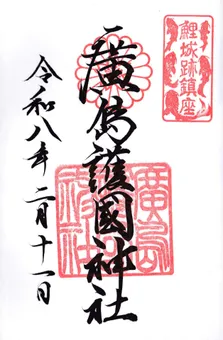 鯉城跡鎮座
廣島護國神社
令和八年二月十一日